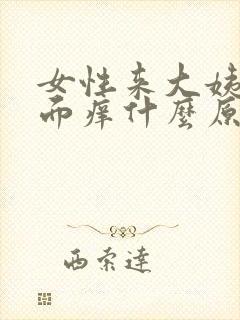 女性来大姨
而痒什麼原
西索達